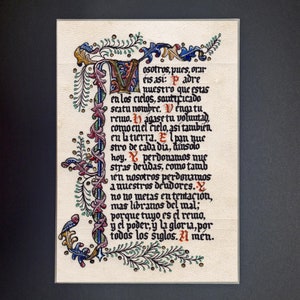 Vosotros, pues, orar
eis asi: Padre
nuestro que estas
en los cielos, santificado
sea tu nombre. Venga tu
reino. Hagase tu voluntad,
como en el cielo, asi tambien
en la tierra. El pan nue
stro de cada dia, dánoslo
hoy. Y perdonamos nue
stras deudas, como tambi
en nosotros perdonamos
a nuestros deudores. Y
no nos metas en tentacion,
mas libranos del mal;
porque tuyo es el reino,
y el poder, y la gloria, por
todos los siglos. Amen.